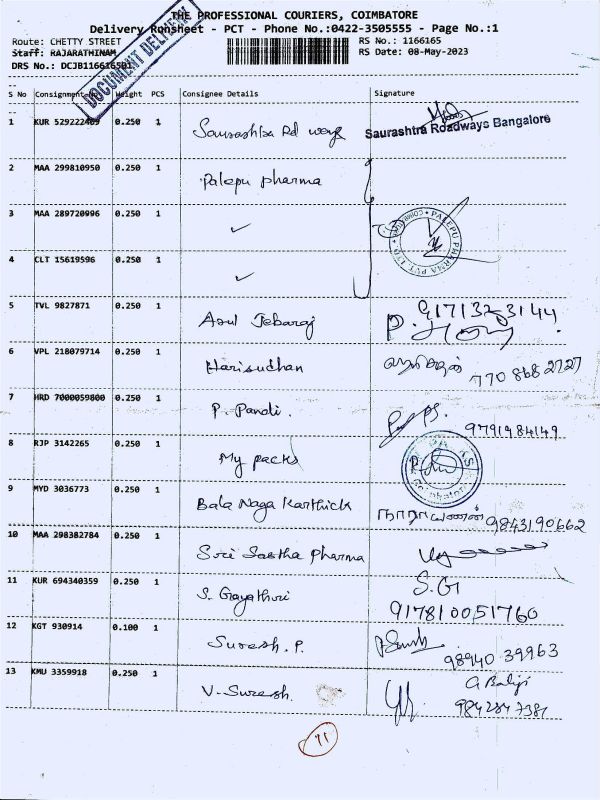 THE PROFESSIONAL COURIERS, COIMBATORE
Delivery Runsheet - PCT - Phone No.:0422-3505555 - Page No.:1
Route: CHETTY STREET
RS No.: 1166165
Staff: RAJARATHINAM
RS Date: 08-May-2023
DRS No.: DCJB116616501
DOCUMENT DELIVERY
S No Consignment No Weight PCS Consignee Details Signature
1 KUR 529222409 0.250 1 Saurashtra Rd ways Saurashtra Roadways Bangalore
2 MAA 299810950 0.250 1 Palepu pharma
3 MAA 289720996 0.250 1 ✓ PALEPU PHARMA PVT. LTD.
4 CLT 15619596 0.250 1 ✓
5 TVL 9827871 0.250 1 Asul Jebaraj 9171323144
6 VPL 218079714 0.250 1 Harisudhan ஹரிசுதன் 770 868 2727
7 HRD 7000059800 0.250 1 P. Pandi. 9791984149
8 RJP 3142265 0.250 1 My packs
9 MYD 3036773 0.250 1 Bala Naga Karthick நாராயணன் 9843190662
10 MAA 298382784 0.250 1 Sri Sastha pharma
11 KUR 694340359 0.250 1 S. Gayathri S.G
917810051760
12 KGT 930914 0.100 1 Suresh. P. 98940 39963
13 KMU 3359918 0.250 1 V. Suresh. G Balaji
9842847381
11